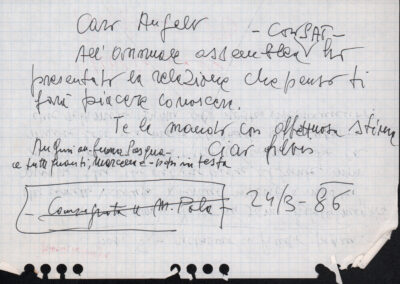 Caro Angelo
- ConSAT -
All' assemblea ho
presentato la relazione che penso ti
farà piacere conoscere.
Te la mando con affettuosa stima
Auguri buona Pasqua - Ciao
a tutti quanti, in testa
- Consegnata a M. Pola - 24/3-86